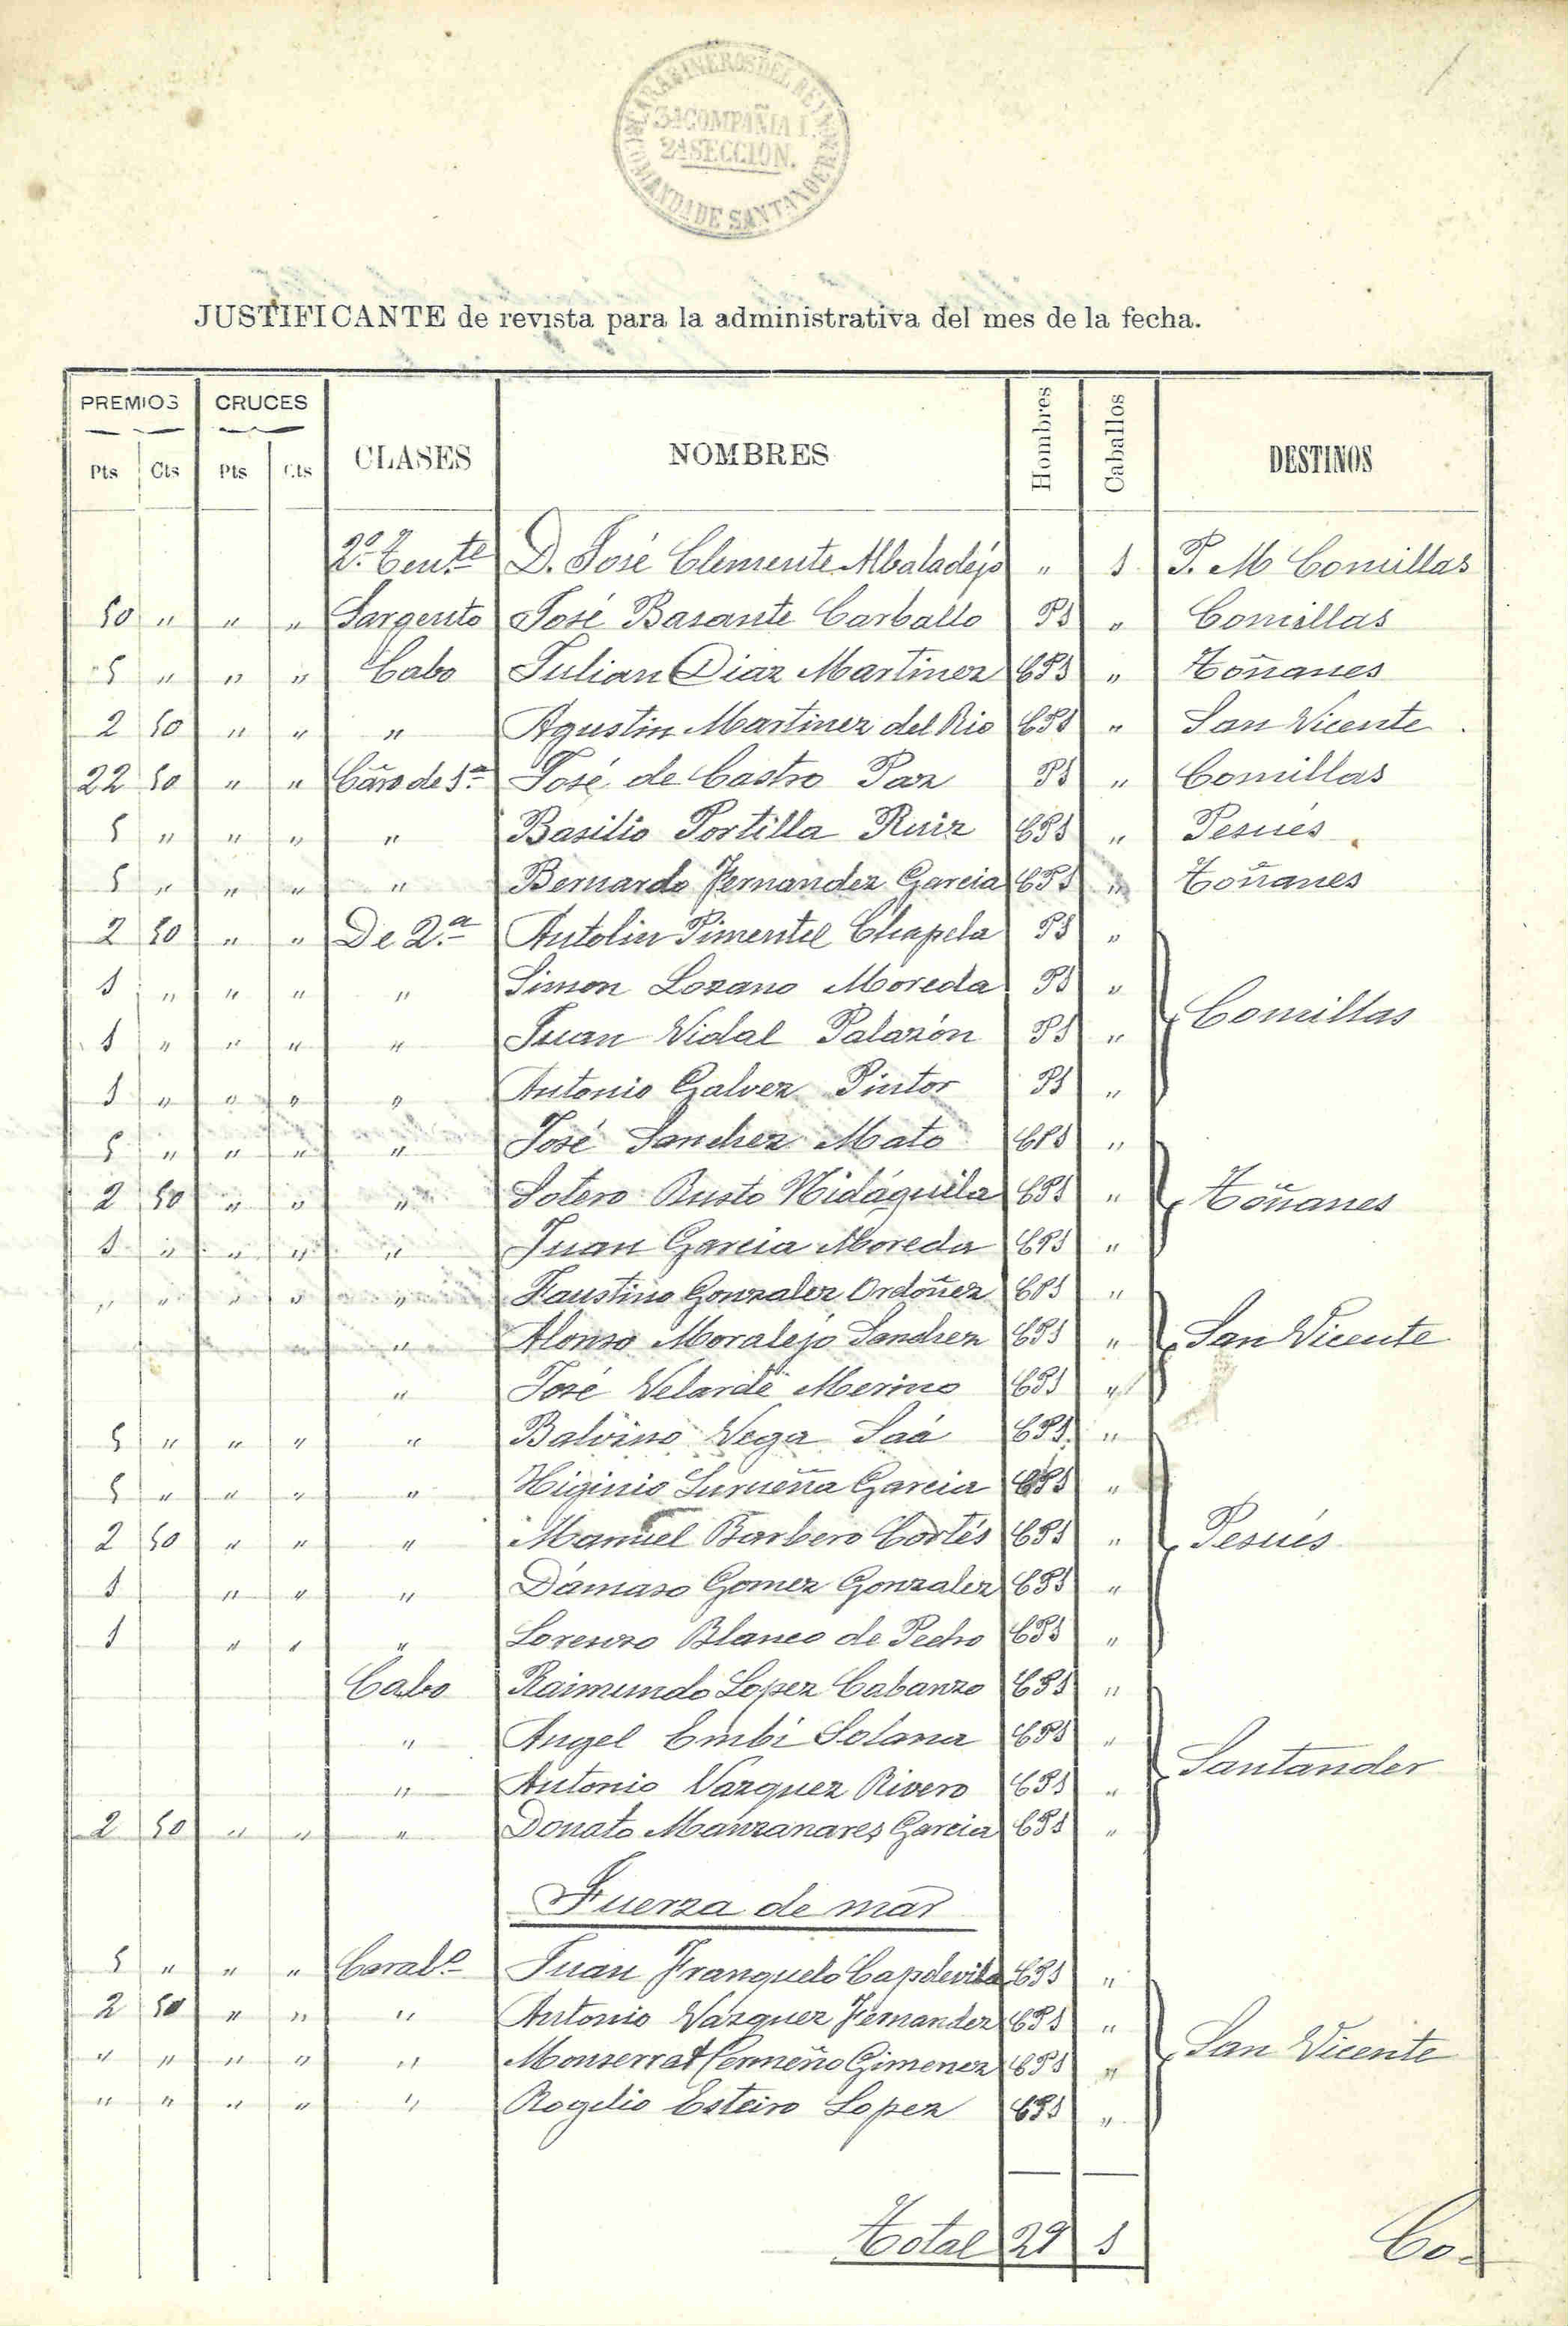 CARABINEROS DEL REYNO
3ª COMPAÑIA
2ª SECCION.
COMANDA DE SANTANDER
JUSTIFICANTE de revista para la administrativa del mes de la fecha.
PREMIOS CRUCES CLASES NOMBRES Hombres Caballos DESTINOS
Pts Cts Pts Cts
2º Tente D. José Clemente Albaladejo " 1 P. M Comillas
50 " " " Sargento José Basante Carballo P1 " Comillas
5 " " " Cabo Julian Diaz Martinez CP1 " Toñanes
2 50 " " " Agustin Martinez del Rio CP1 " San Vicente
22 50 " " Cãro de 1ª José de Castro Paz P1 " Comillas
5 " " " " Basilio Portilla Ruiz CP1 " Pesués
5 " " " " Bernardo Fernandez Garcia CP1 " Toñanes
2 50 " " De 2ª Autolin Pimentel Chapela P1 "
1 " " " " Simon Lozano Moreda P1 "
Comillas
1 " " " " Juan Vidal Palazón P1 "
1 " " " " Antonio Galvez Pintor P1 "
5 " " " " José Sanchez Mato CP1 "
2 50 " " " Sotero Busto Vidáguila CP1 " Toñanes
1 " " " " Juan Garcia Moreda CP1 "
" " " " " Faustino Gonzalez Ordoñez CP1 "
" Alonso Moralejo Sanchez CP1 " San Vicente
" José Velarde Merino CP1 "
5 " " " " Balvino Vega Saá CP1 "
5 " " " " Higinio Lurueña Garcia CP1 "
2 50 " " " Manuel Barbero Cortés CP1 " Pesués
1 " " " Dámaso Gomez Gonzalez CP1 "
1 " " " Lorenzo Blanco de Pecho CP1 "
Cabo Raimundo Lopez Cabanzo CP1 "
" Angel Embi Solana CP1 "
Santander
" Antonio Vazquez Rivero CP1 "
2 50 " " " Donato Manzanares Garcia CP1 "
Fuerza de mar
5 " " " Carabº Juan Franquelo Capdevila CP1 "
2 50 " " " Antonio Vazquez Fernandez CP1 "
San Vicente
" " " " " Monserrat Cermeño Gimenez CP1 "
" " " " " Rogelio Esteiro Lopez CP1 "
Total 29 1 Co-